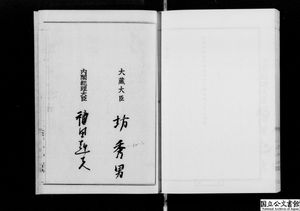 大蔵大臣
坊秀男
内閣総理大臣
福田赳夫
国立公文書館
National Archives of Japan